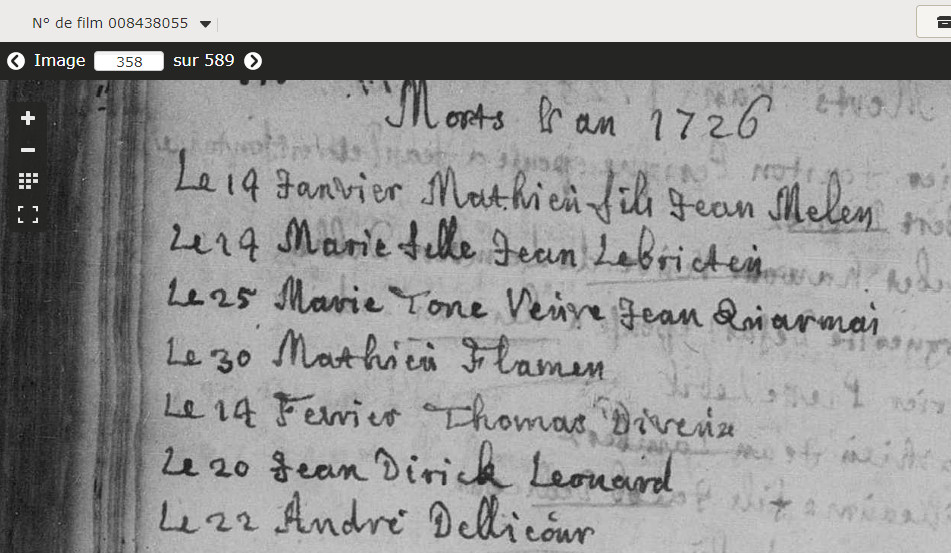 N° de film 008438055
Image 358 sur 589
Morts L an 1726
Le 19 Janvier Mathieu fils Jean Melen
Le 19 Marie fille Jean Lebricteu
Le 25 Marie Tone Veuve Jean Quarmai
Le 30 Mathieu Flamen
Le 19 Fevrier Thomas
Le 20 Jean Dirick Leonard
Le 22 André Dellicour